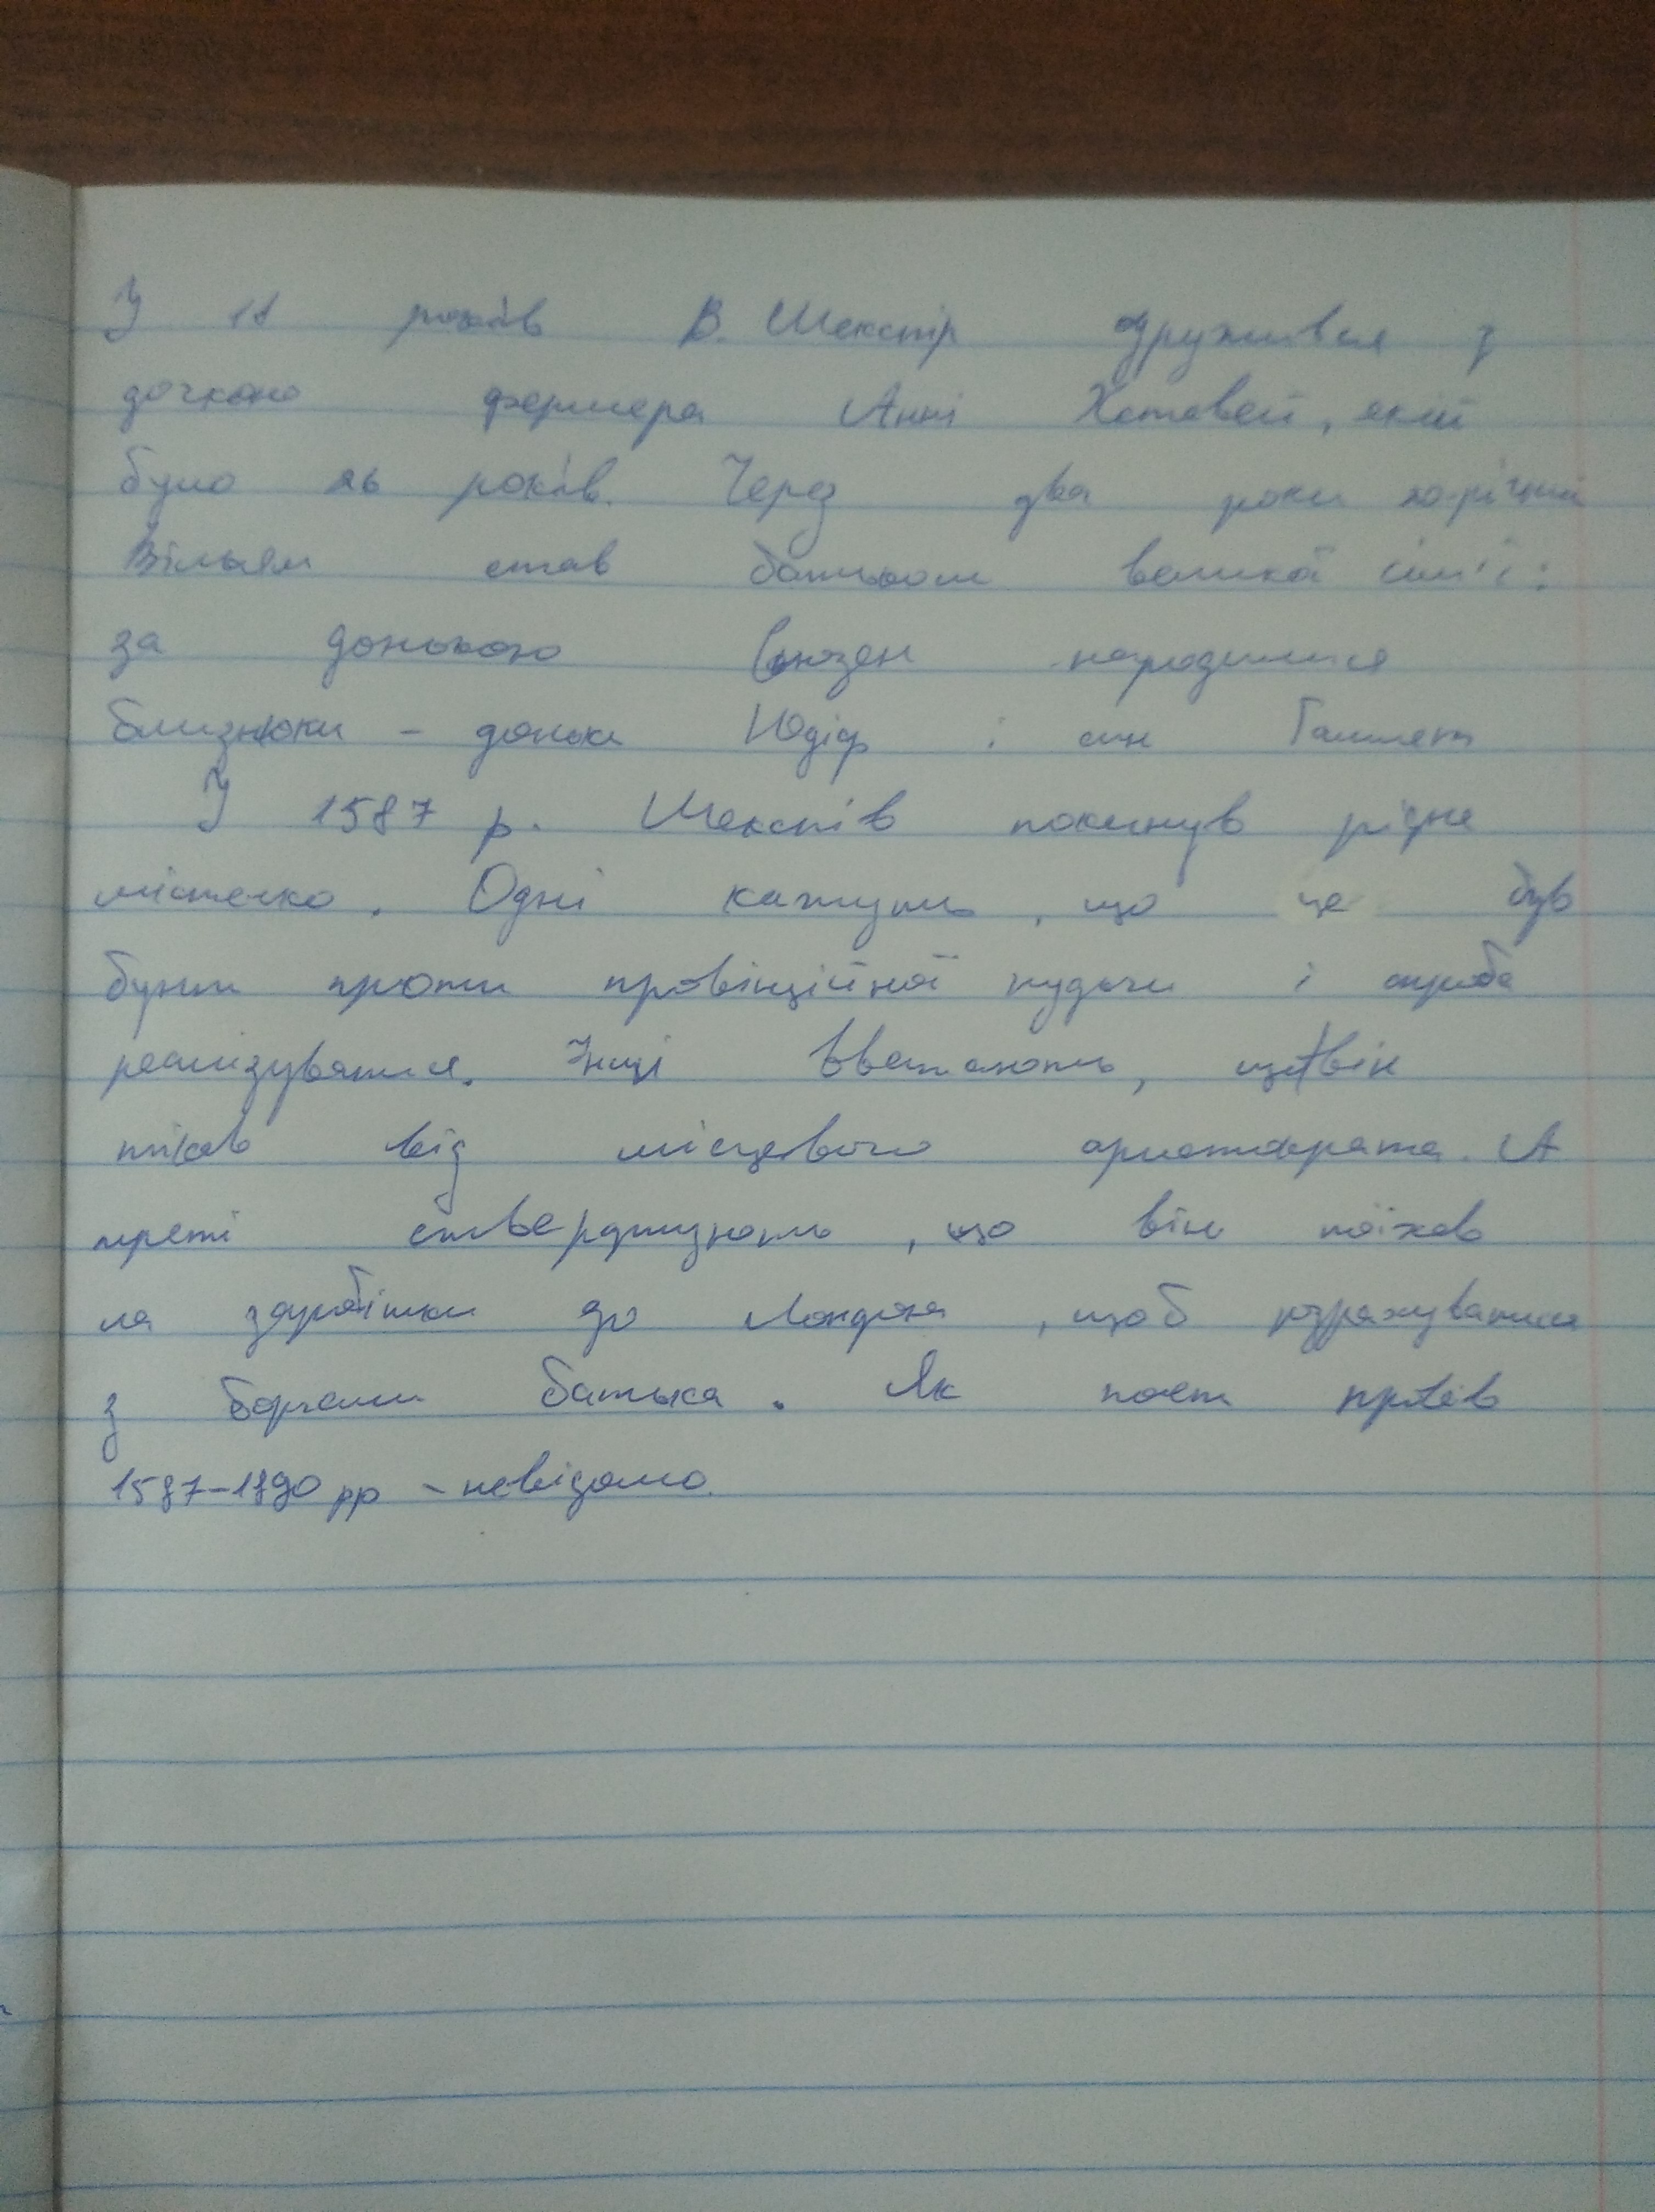 У 18 років В. Шекспір одружився з
дочкою фермера Анні Хетевей, якій
було 26 років. Через два роки 20-річний
Вільям став батьком великої сім'ї:
за донькою Сюзен народилися
близнюки - донька Юдіф і син Гамлет
У 1587 р. Шекспів покинув рідне
містечко. Одні кажуть, що це був
бунт проти провінційної нудьги і спроба
реалізуватися. Інші вважають, що він
тікав від місцевого аристократа. А
треті стверджують, що він поїхав
на заробітки до Лондона, щоб розрахуватися
з боргами батька. Як поет провів
1587-1890 рр - невідомо.